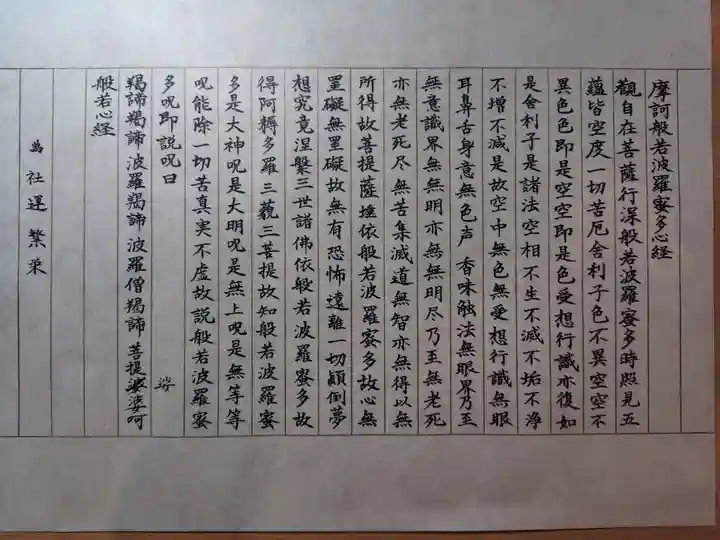 摩訶般若波羅蜜多心経
観自在菩薩行深般若波羅蜜多時照見五
蘊皆空度一切苦厄舎利子色不異空空不
異色色即是空空即是色受想行識亦復如
是舎利子是諸法空相不生不滅不垢不浄
不増不減是故空中無色無受想行識無眼
耳鼻舌身意無色声香味触法無眼界乃至
無意識界無無明亦無無明尽乃至無老死
亦無老死尽無苦集滅道無智亦無得以無
所得故菩提薩埵依般若波羅蜜多故心無
罣礙無罣礙故無有恐怖遠離一切顛倒夢
想究竟涅槃三世諸佛依般若波羅蜜多故
得阿耨多羅三藐三菩提故知般若波羅蜜
多是大神呪是大明呪是無上呪是無等等
呪能除一切苦真実不虚故説般若波羅蜜
多呪即説呪曰
羯諦羯諦波羅羯諦波羅僧羯諦菩提婆婆呵
娑
般若心経
為社運繁栄